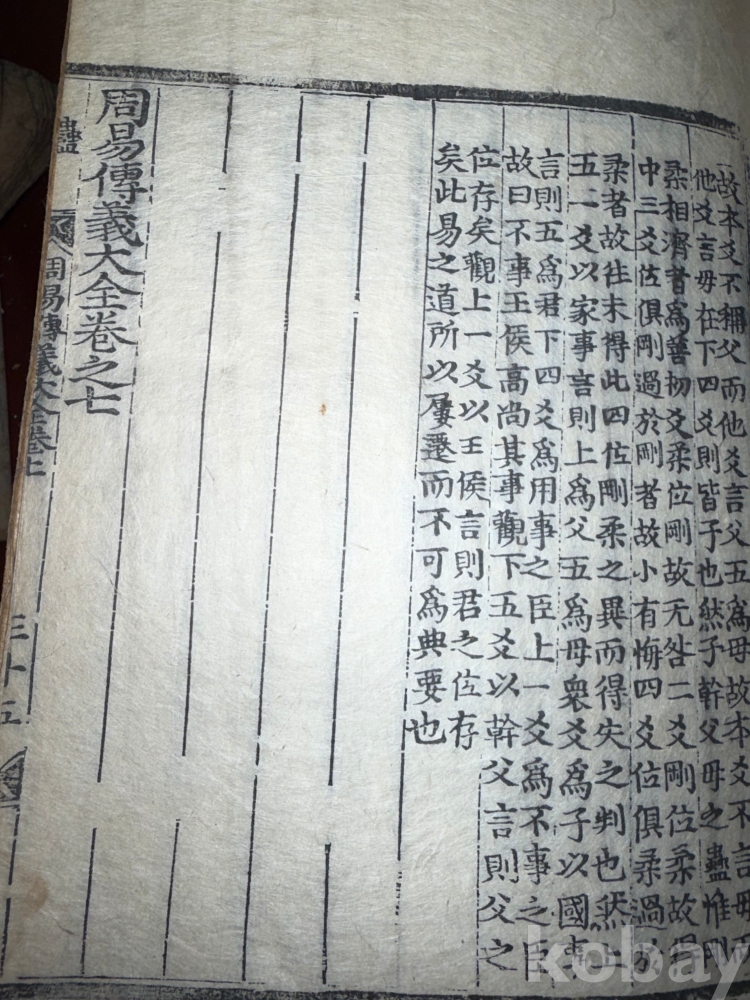 故本爻不稱父而他爻言父五爲母故本爻不言母而
他爻言母在下四爻則皆子也然子幹父母之蠱惟剛
柔相濟者爲善初爻柔位剛故无咎二爻剛位柔故得
中三爻位俱剛過於剛者故小有悔四爻位俱柔過於
柔者故往未得此四位剛柔之異而得失之判也然上
五二爻以家事言則上爲父五爲母衆爻爲子以國事
言則五爲君下四爻爲用事之臣上一爻爲不事之臣
故曰不事王侯高尚其事觀下五爻以幹父言則父之
位存矣觀上一爻以王侯言則君之位存
矣此易之道所以屢遷而不可爲典要也
周易傳義大全卷之七
蠱 周易傳義大全卷七 三十五
kobay